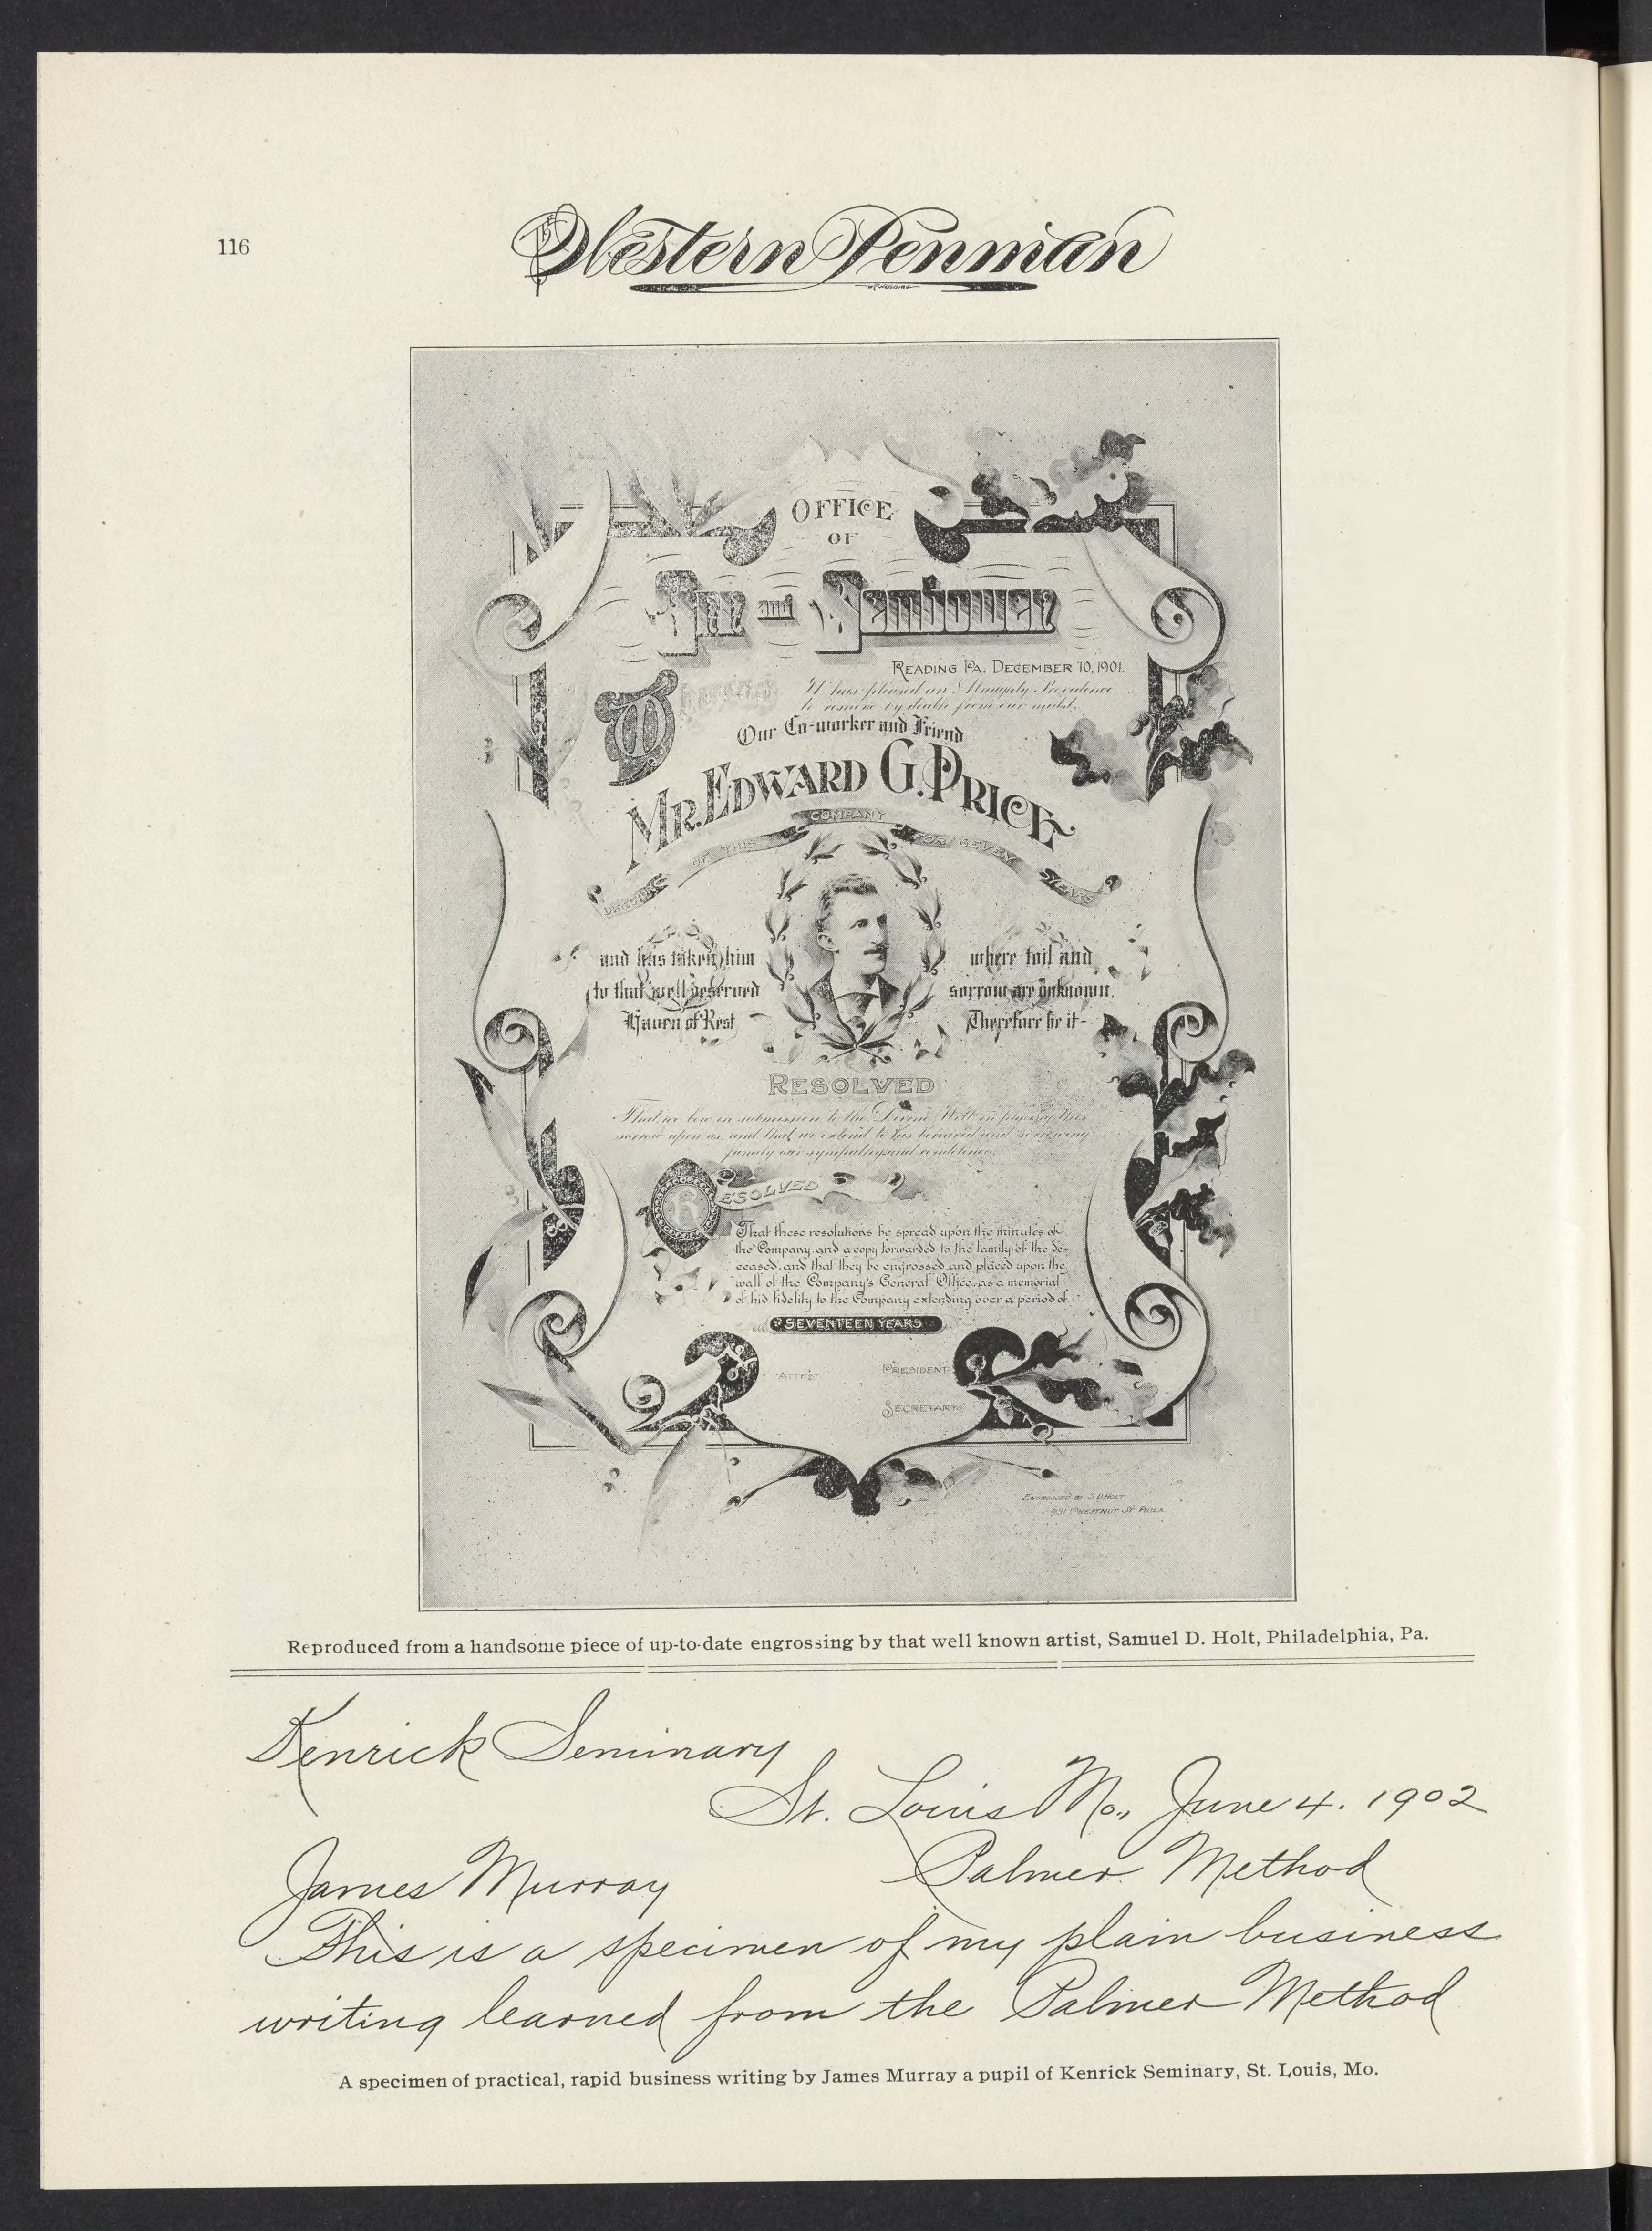 116
The Western Penman
OFFICE
OF
and
READING PA. DECEMBER 10, 1901.
Whereas
It has pleased an Almighty Providence
to remove by death from our midst.
Our Co-worker and Friend
MR. EDWARD G. PRICE
DIRECTOR OF THIS COMPANY FOR SEVEN YEARS
and has taken him
to that well deserved
Haven of Rest
where toil and
sorrow are unknown.
Therefore be it-
RESOLVED
That we bow in submission to the Divine Will in placing this
sorrow upon us, and that we extend to his bereaved and sorrowing
family our sympathy and condolence.
RESOLVED
That these resolutions be spread upon the minutes of
the Company and a copy forwarded to the family of the de-
ceased, and that they be engrossed and placed upon the
wall of the Company's General Office, as a memorial
of his fidelity to the Company extending over a period of
SEVENTEEN YEARS
ATTEST
PRESIDENT
SECRETARY
ENGROSSED BY S.D. HOLT
931 CHESTNUT ST. PHILA.
Reproduced from a handsome piece of up-to-date engrossing by that well known artist, Samuel D. Holt, Philadelphia, Pa.
Kenrick Seminary
St. Louis Mo., June 4. 1902
James Murray
Palmer Method
This is a specimen of my plain business
writing learned from the Palmer Method
A specimen of practical, rapid business writing by James Murray a pupil of Kenrick Seminary, St. Louis, Mo.